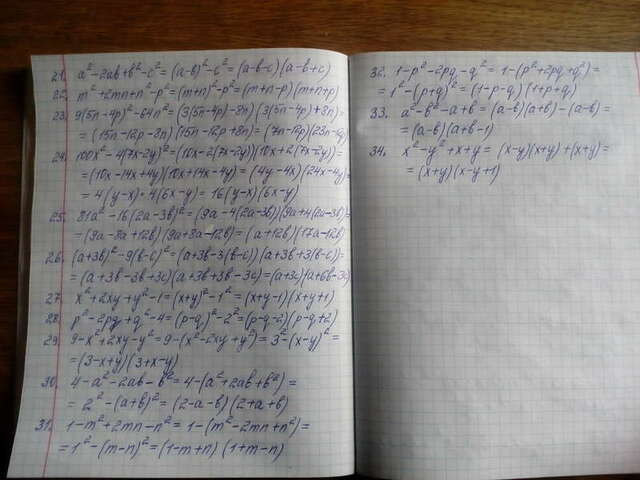 21. a² - 2ab + b² - c² = (a-b)² - c² = (a-b-c)(a-b+c)
22. m² + 2mn + n² - p² = (m+n)² - p² = (m+n-p)(m+n+p)
23. 9(5n-4p)² - 64n² = (3(5n-4p)-8n)(3(5n-4p)+8n) =
= (15n-12p-8n)(15n-12p+8n) = (7n-12p)(23n-12p)
24. 100x² - 4(7x-2y)² = (10x-2(7x-2y))(10x+2(7x-2y)) =
= (10x-14x+4y)(10x+14x-4y) = (4y-4x)(24x-4y) =
= 4(y-x)·4(6x-y) = 16(y-x)(6x-y)
25. 81a² - 16(2a-3b)² = (9a-4(2a-3b))(9a+4(2a-3b)) =
= (9a-8a+12b)(9a+8a-12b) = (a+12b)(17a-12b)
26. (a+3b)² - 9(b-c)² = (a+3b-3(b-c))(a+3b+3(b-c)) =
= (a+3b-3b+3c)(a+3b+3b-3c) = (a+3c)(a+6b-3c)
27. x² + 2xy + y² - 1 = (x+y)² - 1² = (x+y-1)(x+y+1)
28. p² - 2pq + q² - 4 = (p-q)² - 2² = (p-q-2)(p-q+2)
29. 9 - x² + 2xy - y² = 9 - (x² - 2xy + y²) = 3² - (x-y)² =
= (3-x+y)(3+x-y)
30. 4 - a² - 2ab - b² = 4 - (a² + 2ab + b²) =
= 2² - (a+b)² = (2-a-b)(2+a+b)
31. 1 - m² + 2mn - n² = 1 - (m² - 2mn + n²) =
= 1² - (m-n)² = (1-m+n)(1+m-n)
32. 1 - p² - 2pq - q² = 1 - (p² + 2pq + q²) =
= 1² - (p+q)² = (1-p-q)(1+p+q)
33. a² - b² - a + b = (a-b)(a+b) - (a-b) =
= (a-b)(a+b-1)
34. x² - y² + x + y = (x-y)(x+y) + (x+y) =
= (x+y)(x-y+1)